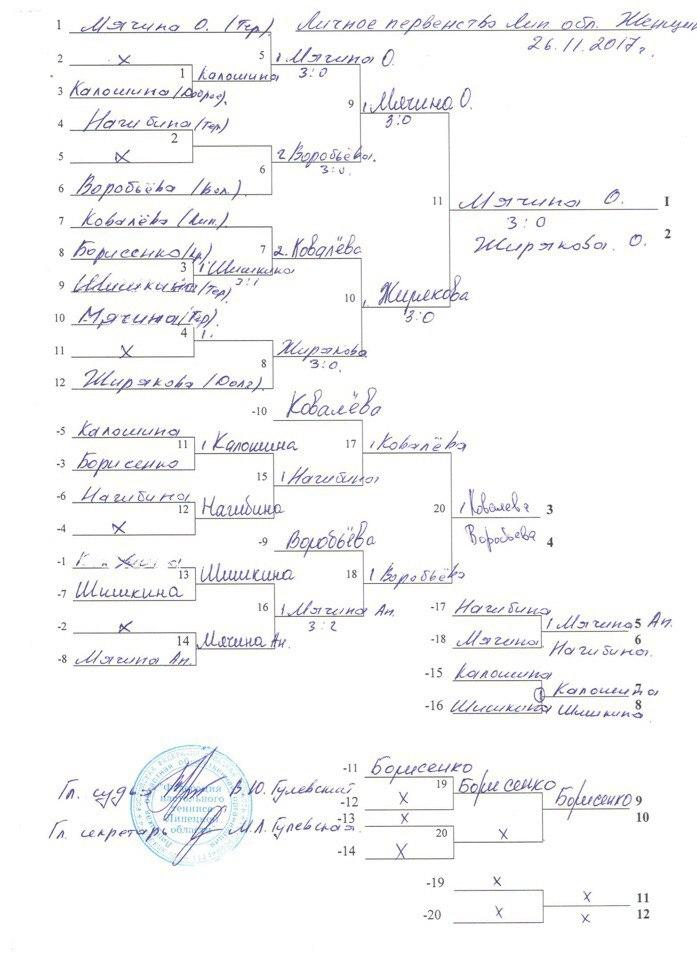 1 Мячина О. (Тер) Личное первенство Лип обл. Женщин
26.11.2017г.
2 x 5 1 Мячина О.
3:0
1 Калошина
3 Калошина (Доброе). 9 1 Мячина О.
3:0
4 Нагибина (Тер)
2
5 x 2 Воробьёва.
3:0.
6
6 Воробьёва (Вол.). 11 Мячина О. 1
3:0
7 Ковалёва (Лип.) Жирякова. О. 2
8 Борисенко 7 2. Ковалёва
3 1 Шишкина
3:1
9 Шишкина (Тер).
10 Мячина (Тер). 10 1 Жирякова
3:0
4 1.
11 x 8 Жирякова
3:0.
12 Жирякова (Долг).
-10 Ковалёва
-5 Калошина
11 1 Калошина 17 1 Ковалёва
-3 Борисенко
15 1 Нагибина
-6 Нагибина
12 Нагибина 20 1 Ковалева 3
-4 x Воробьева 4
-9 Воробьёва
-1
13 Шишкина 18 1 Воробьёва
-7 Шишкина
16 1 Мячина Ан.
3:2
-17 Нагибина
-2 x 1 Мячина Ан. 5
14 Мячина Ан. -18 Мячина Нагибина. 6
-8 Мячина Ан.
-15 Калошина
1 Калошина 7
-16 Шишкина Шишкина 8
-11 Борисенко
Гл. судья В.Ю. Гулевский 19 Борисенко
-12 x Борисенко 9
-13 x 10
Гл. секретарь М.Л. Гулевская. 20 x
-14 x
Федерация
настольного
тенниса
Липецкой
области
-19 x
x 11
-20 x x 12